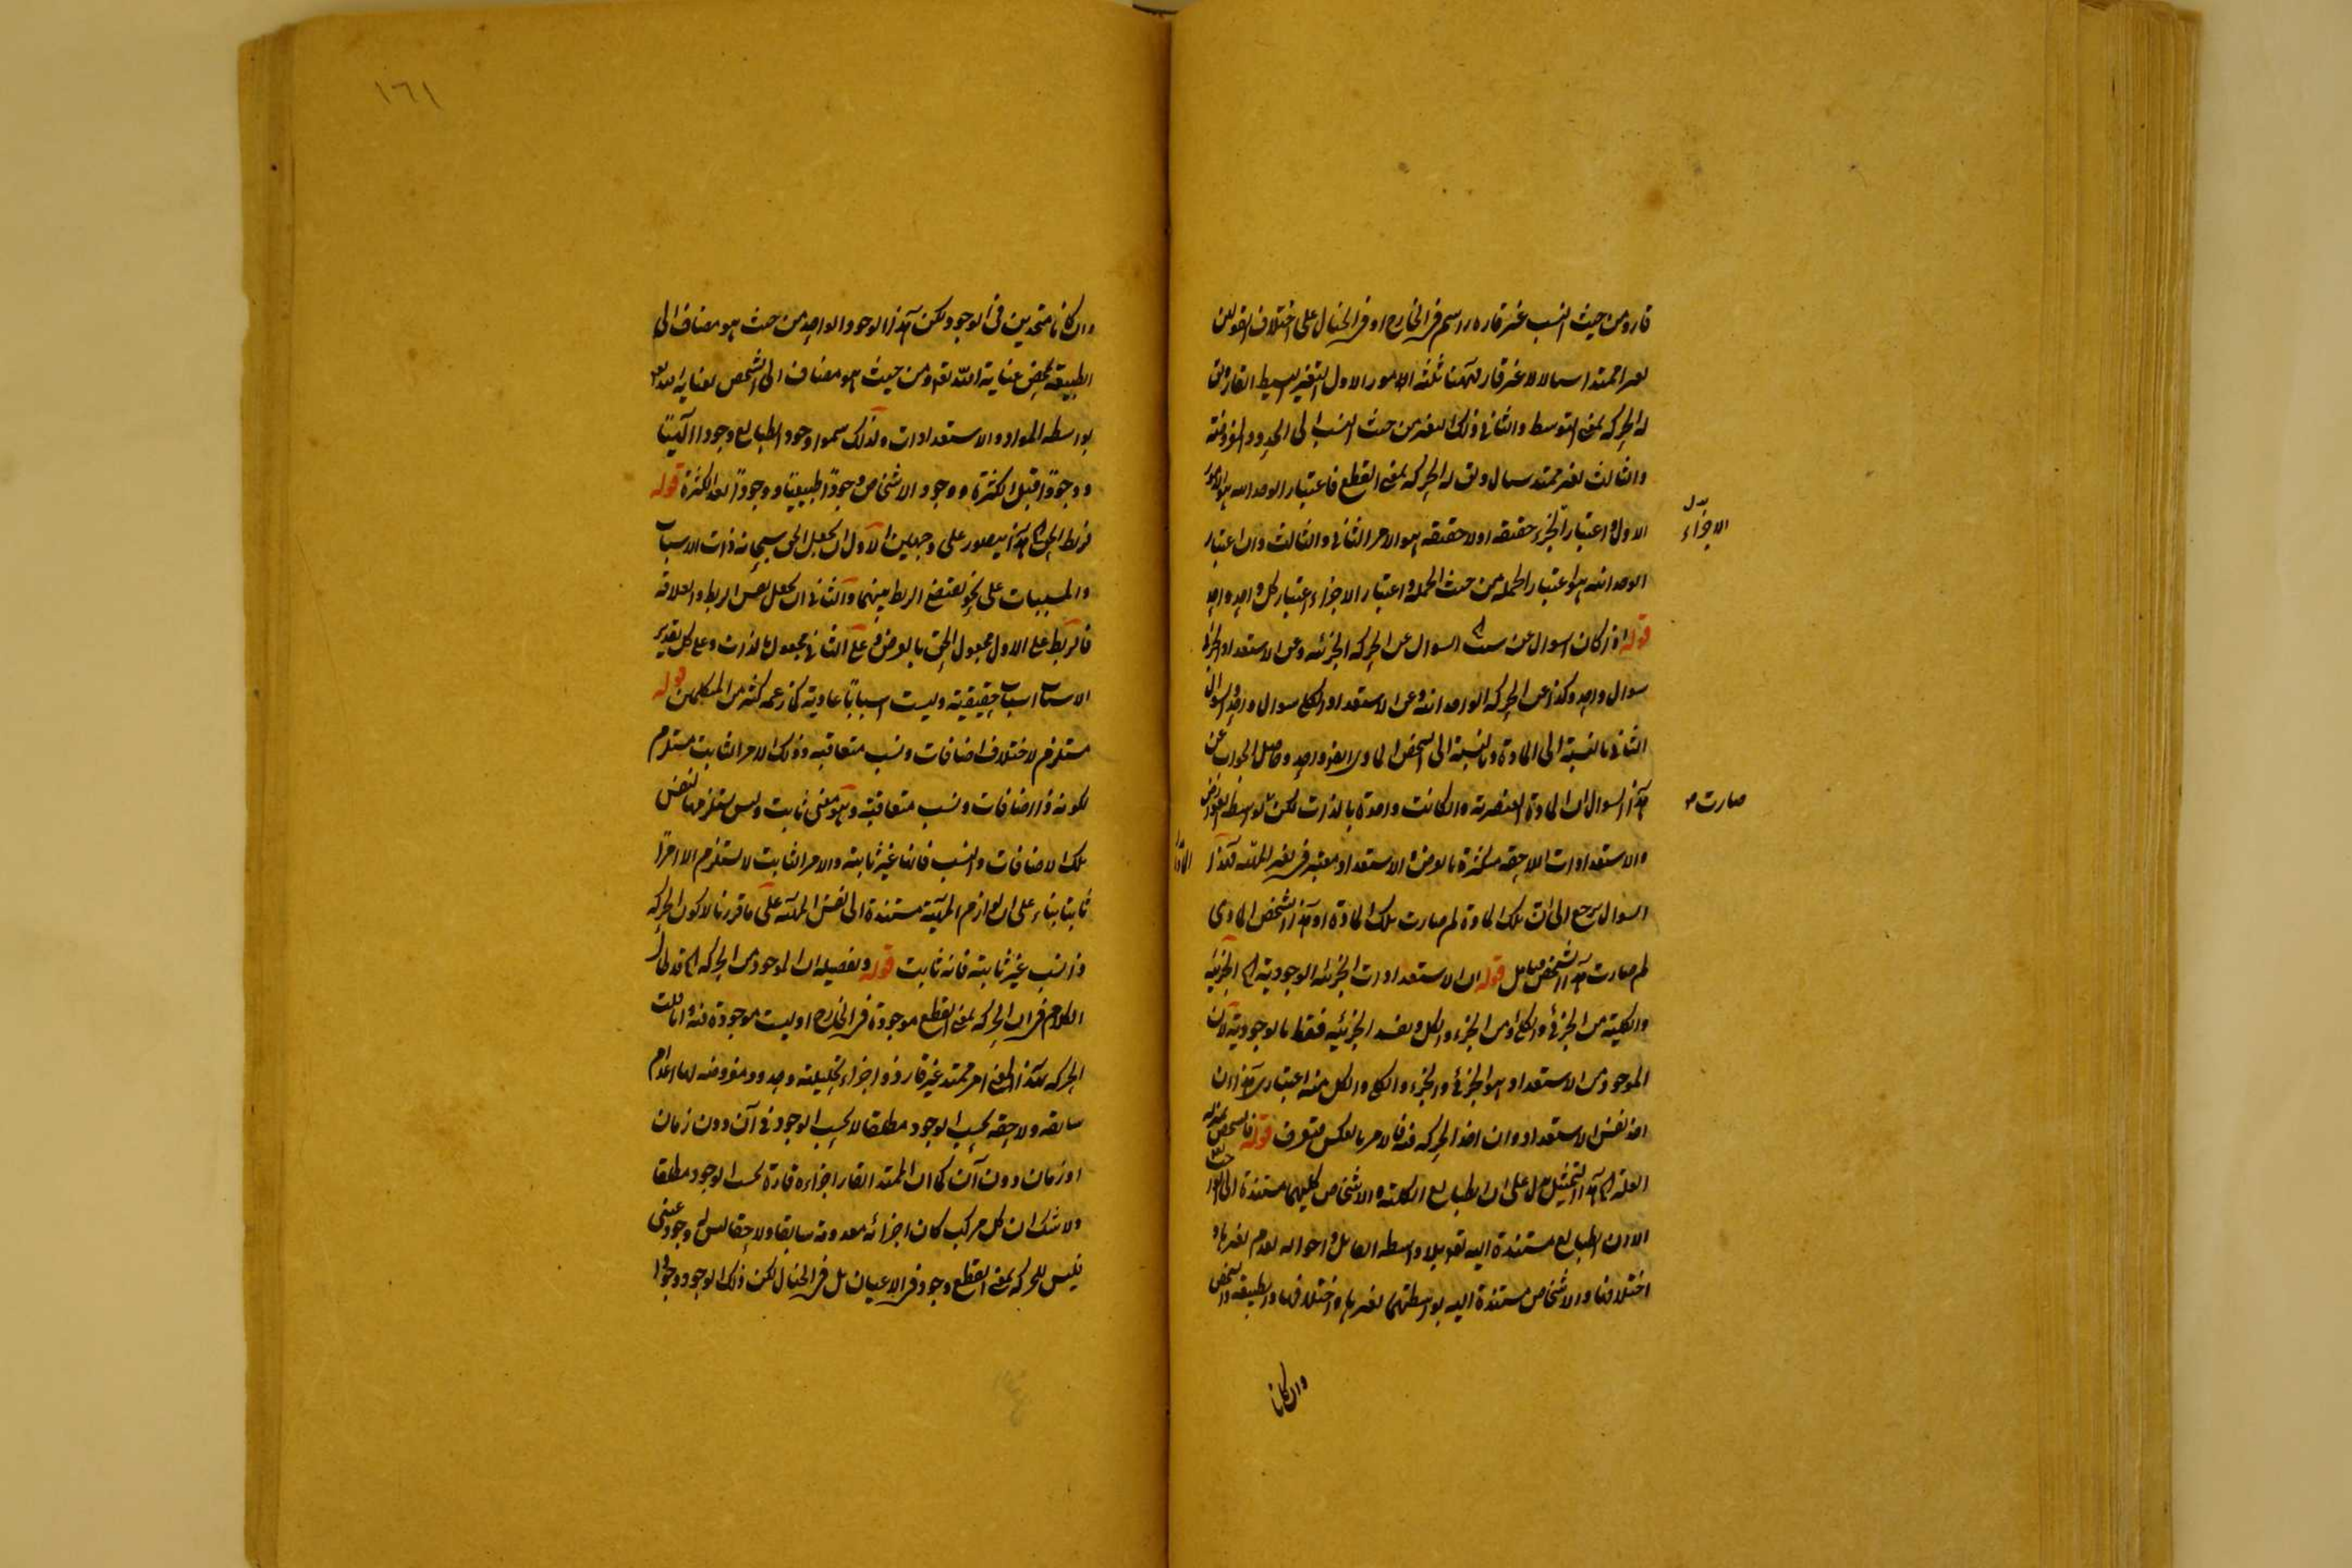 قار ومن حيث النسب غير قاره راسم فى الخارج او فى الخيال على اختلاف القولين
امرا ممتدا سيالا غير قار فهنا ثلثة الامور الاول التغير البسيط القار وق
له الحركة بمعنى التوسط والثانى ذلك التغير من حيث النسب الى الحدود المفروضة
والثالث تغير ممتد سيال وق له الحركة بمعنى القطع فاعتبار الوحدانيه هو الامر
الاول واعتبار الجزء حقيقه اولا حقيقه هو الامر الثانى والثالث وان اعتبار
الوحدانيه هو اعتبار الجمله من حيث الجمله واعتبار الاجزاء اعتبار كل واحد واحد
قوله اذ كان السوال عن السوال عن الحركة الجزئيه وعن الاستعداد الجزئى
سوال واحد وكذا عن الحركة الوحدانيه وعن الاستعداد الكلى سوال واحد والسوال
الثانى بالنسبة الى المادة وبالنسبة الى الشخص المادى ايضا واحد وحاصل الجواب عن
هذا السوال ان المادة العنصرية وان كانت واحدة بالذات لكن بواسطه العوارض
والاستعدادات اللاحقه متكثرة بالعرض والاستعداد معتبر فى نفس المهيه فهذا
السوال يرجع الى ان تلك المادة لم صارت تلك المادة او هذا الشخص المادى
لم صارت هذا الشخص تامل قوله ان الاستعدادات الجزئيه الوجودية اى الجزئية
والكلية من الجزئى والكلى او من الجزء والكل وتقييد الجزئيه فقط بالوجودية لان
الموجود من الاستعداد هو الجزئى والجزء والكلى والكل منه اعتبارى هذا ان
اخذ نفس الاستعداد وان اخذ الحركه فيه فالامر بالعكس فتعرف قوله فالشخص بمنزلة
العلة اى هذا التمثيل يدل على ان الطبايع الكليه والاشخاص كليهما مستندة الى الله
الا ان الطبايع مستندة اليه تع بلا واسطه القابل واحواله لعدم تغيرها و
اختلافها والاشخاص مستندة اليه بواسطتهما لتغيرها واختلافها والطبيعه والشخص
الاجزاء
صارت
وان كانا
١٦١
وان كانا متحدين فى الوجود لكن هذا الوجود الواحد من حيث هو مضاف الى
الطبيعة بمحض عناية الله تعه ومن حيث هو مضاف الى الشخص بعناية الله تعه
بواسطه المواد والاستعدادات ولذلك سموا وجود الطبايع وجودا الٓهيّا
ووجودًا قبل الكثرة ووجود الاشخاص وجودًا طبيعيّا ووجودًا بعد الكثرة قوله
فربط الحق اه هذا يتصور على وجهين الاول ان يجعل الحق سبحانه ذات الاسباب
والمسببات على نحو يقتضى الربط بينهما والثانى ان يجعل نفس الربط والعلاقة
فالربط على الاول مجعول الحق بالعرض وعلى الثانى مجعول بالذات وعلى كل تقدير
الاسباب اسباب حقيقية وليست اسبابًا عادية كما زعمه كثير من المتكلمين قوله
مستلزم لاختلاف اضافات ونسب متعاقبه وذلك الامر الثابت مستلزم
لكونه ذا اضافات ونسب متعاقبة وهو معنى ثابت وليس مستلزما لنفس
تلك الاضافات والنسب فانها غير ثابته والامر الثابت لا يستلزم الا امرًا
ثابتا بناء على ان لوازم المهية مستندة الى نفس المهيه على ما قررنا لا كون الحركه
ذا نسب غير ثابته فانه ثابت قوله وتفصيله ان الموجود من الحركه اه قد طال
الكلام فى ان الحركه بمعنى القطع موجودة فى الخارج او ليست موجودة فيه وانا قلت
الحركه بهذا المعنى امر ممتد غير قار ذو اجزاء تحليليه وحدود مفروضه لها اعدام
سابقه ولاحقه بحسب الوجود مطلقا لا بحسب الوجود فى آن دون زمان
او زمان دون آن كما ان الممتد القار اجزاءه قارة بحسب الوجود مطلقا
ولا شك ان كل مركب كان اجزائه معدومة سابقا ولاحقا ليس له وجود عينى
فليس للحركه بمعنى القطع وجود فى الاعيان بل فى الخيال لكن ذلك الوجود وجودا